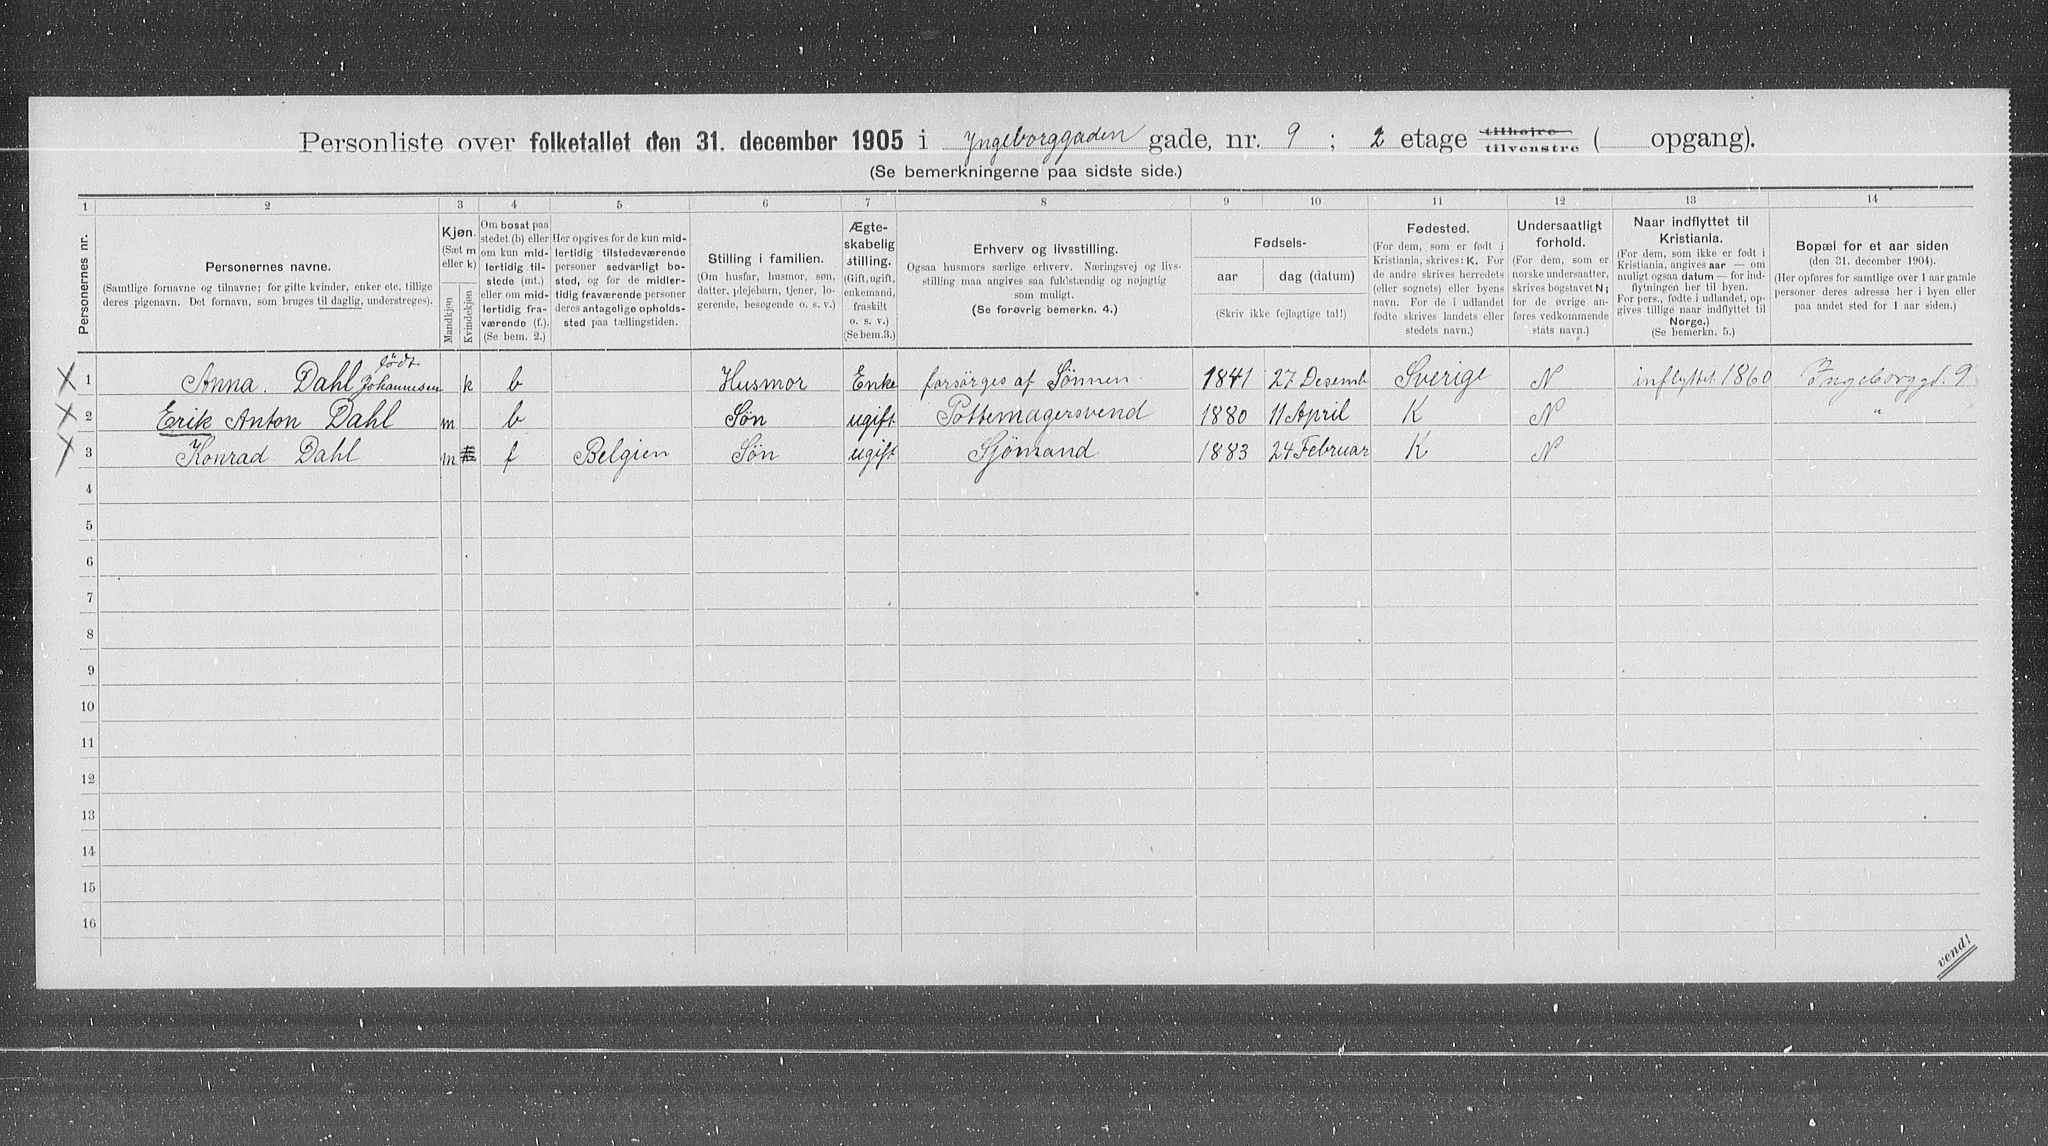 Personliste over folketallet den 31. december 1905 i Yngeborggaden gade, nr. 9 ; 2 etage tilhøjre tilvenstre ( opgang).
(Se bemerkningerne paa sidste side.)
1 2 3 4 5 6 7 8 9 10 11 12 13 14
Personernes nr.
Personernes navne.
(Samtlige fornavne og tilnavne; for gifte kvinder, enker etc. tillige
deres pigenavn. Det fornavn, som bruges til daglig, understreges).
Kjøn.
(Sæt m
eller k)
Mandkjøn
Kvindekjøn
Om bosat paa
stedet (b) eller
om kun mid-
lertidig til-
stede (mt.)
eller om mid-
lertidig fra-
værende (f.).
(Se bem. 2.)
Her opgives for de kun mid-
lertidig tilstedeværende
personer sedvarligt bo-
sted, og for de midler-
tidig fraværende personer
deres antagelige opholds-
sted paa tællingstiden.
Stilling i familien.
(Om husfar, husmor, søn,
datter, plejebarn, tjener, lo-
gerende, besøgende o. s. v.)
Ægte-
skabelig
stilling.
(Gift, ugift,
enkemand,
fraskilt
o. s. v.)
(Se bem.3.)
Erhverv og livsstilling.
Ogsaa husmors særlige erhverv. Næringsvej og livs-
stilling maa angives saa fuldstændig og nøjagtig
som muligt.
(Se forøvrig bemerkn. 4.)
Fødsels-
aar
dag (datum)
(Skriv ikke fejlagtige tal!)
Fødested.
(For dem, som er født i
Kristiania, skrives: K. For
de andre skrives herredets
(eller sognets) eller byens
navn. For de i udlandet
fødte skrives landets eller
stedets navn.)
Undersaatligt
forhold.
(For dem, som er
norske undersaatter,
skrives bogstavet N;
for de øvrige an-
føres vedkommende
stats navn.)
Naar indflyttet til
Kristiania.
(For dem, som ikke er født i
Kristiania, angives aar — om
muligt ogsaa datum — for ind-
flytningen her til byen.
For pers., fødte i udlandet, op-
gives tillige naar indflyttet til
Norge.)
(Se bemerkn. 5.)
Bopæl for et aar siden
(den 31. december 1904).
(Her opføres for samtlige over 1 aar gamle
personer deres adresse her i byen eller
paa andet sted for 1 aar siden.)
født
X 1 Anna. Dahl Johannesen k b Husmor Enke forsørges af Sønnen 1841 27 Desemb Sverige N inflyttet 1860 Yngeborggd. 9
X 2 Erik Anton Dahl m b Søn ugift Pottemagersvend 1880 11 April K N "
X 3 Konrad Dahl m f Belgien Søn ugift Sjömand 1883 24 Februar K N
4
5
6
7
8
9
10
11
12
13
14
15
16
vend!